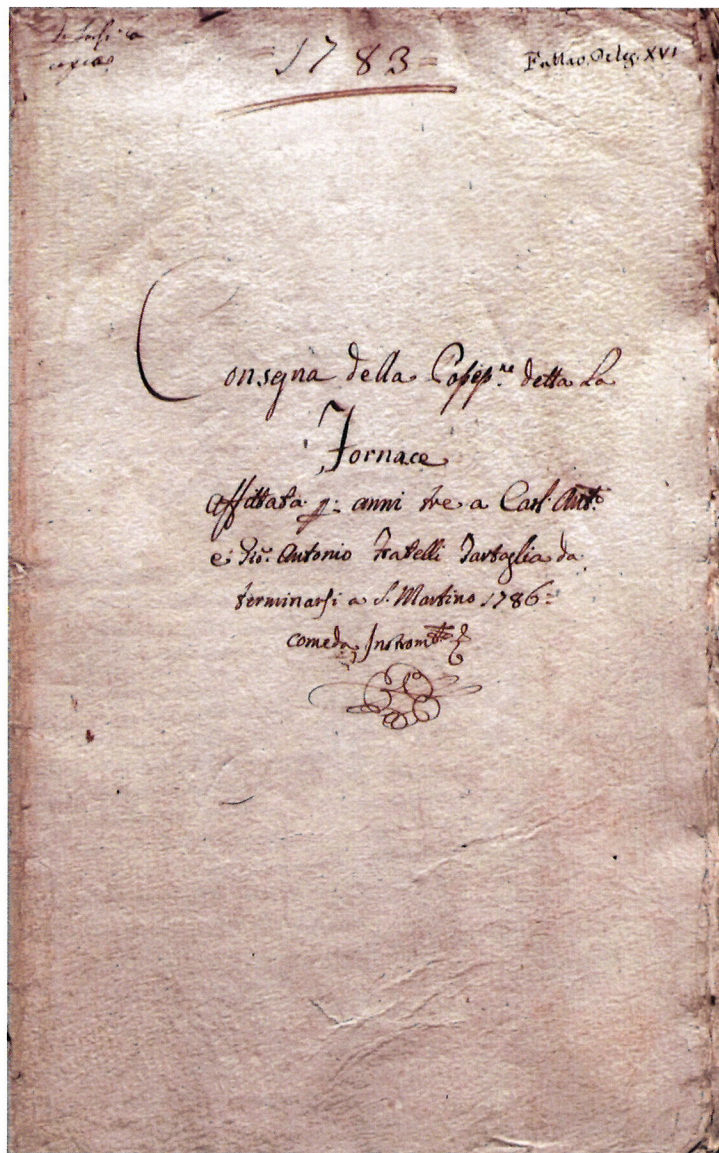 = 1783 =
Consegna della Possess.ne detta La
Fornace
affittata p: anni tre a Carl' Ant.o
e Gio. Antonio Fratelli Tartaglia da
terminarsi a S. Martino 1786=
come da Instrom.to